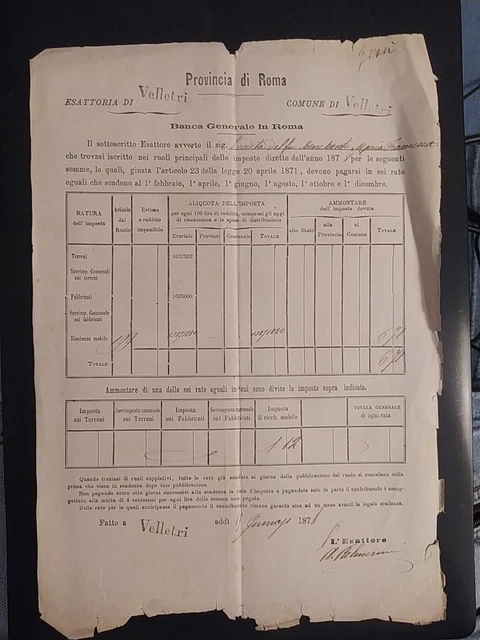 Provincia di Roma
ESATTORIA DI Velletri COMUNE DI Velletri
Banca Generale in Roma
Il sottoscritto Esattore avverte il sig. Maria Francesca
che trovasi iscritto nei ruoli principali delle imposte dirette dell'anno 1878 per le seguenti
somme, le quali, giusta l'articolo 23 della legge 20 aprile 1871, devono pagarsi in sei rate
eguali che scadono al 1° febbraio, 1° aprile, 1° giugno, 1° agosto, 1° ottobre e 1° dicembre.
NATURA dell'imposta
Articolo del Ruolo
Estimo o reddito imponibile
ALIQUOTA DELL'IMPOSTA
per ogni 100 lire di reddito, compresi gli aggi di riscossione e le spese di distribuzione
Erariale Provinc. Comunale TOTALE
AMMONTARE dell'imposta dovuta
allo Stato alla Provincia al Comune TOTALE
Terreni
Sovrimp. Comunale sui terreni
Fabbricati 1625000
Sovrimp. Comunale sui fabbricati
Ricchezza mobile 671
TOTALE 671
Ammontare di una delle sei rate eguali in cui sono divise le imposte sopra indicate.
Imposta sui Terreni
Sovrimposta comunale sui Terreni
Imposta sui Fabbricati
Sovrimposta comunale sui Fabbricati
Imposta di ricch. mobile
TOTALE GENERALE di ogni rata
1 12
Quando trattisi di ruoli suppletivi, tutte le rate già scadute al giorno della pubblicazione del ruolo si cumulano colla
prima che viene in scadenza dopo tale pubblicazione.
Non pagando entro otto giorni successivi alla scadenza la rata d'imposta o pagandola solo in parte il contribuente è assog-
gettato alla multa di 4 centesimi per ogni lira della somma non pagata.
Delle rate per le quali anticipasse il pagamento rimane garante sino ad un mese avanti la legale scadenza.
Fatto a Velletri addì Gennajo 1878
L'Esattore